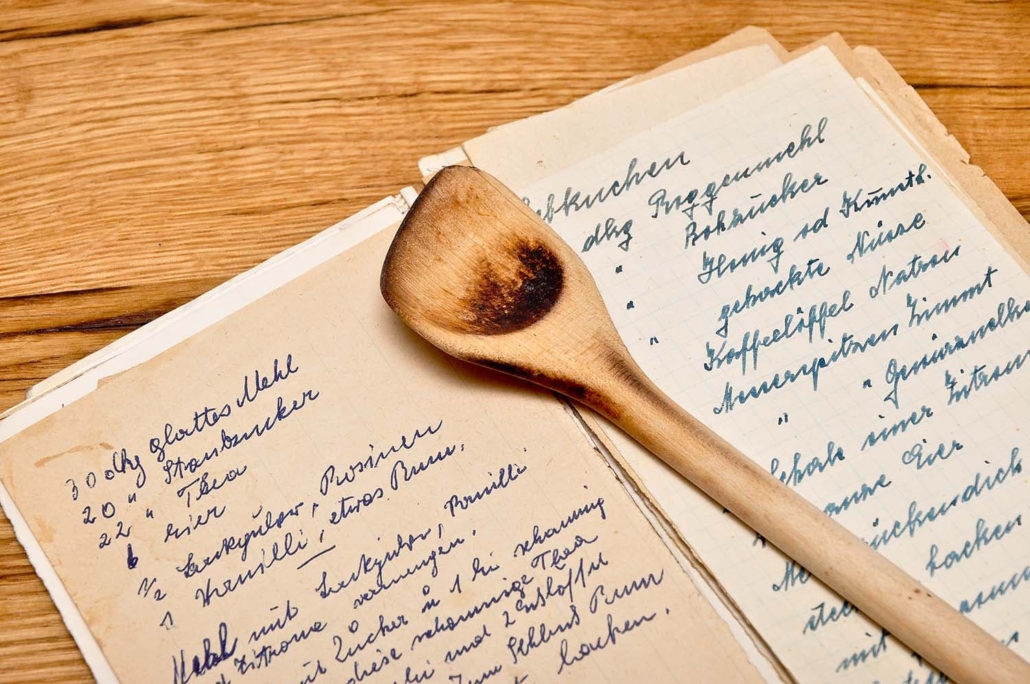 30 dkg glattes Mehl
20 " Staubzucker
22 " Thea
6 Eier
1/2 Backpulver, Rosinen
1 Vanilli, etwas Rum.
Mehl mit Backpulver, Vanilli
Zitrone vermengen.
mit Zucker u 1 Ei schaumig
diese schaumige Thea
und 2 Esslöffel
zum Schluss Rum
backen.
ebkuchen
dkg Roggenmehl
" Rohzucker
" Honig od Kunsth.
" gehackte Nüsse
Kaffeelöffel Natron
Messerspitzen Zimmt
" Gewürznelke
Schale einer Zitron
ganze Eier
rückendick
backen
mit